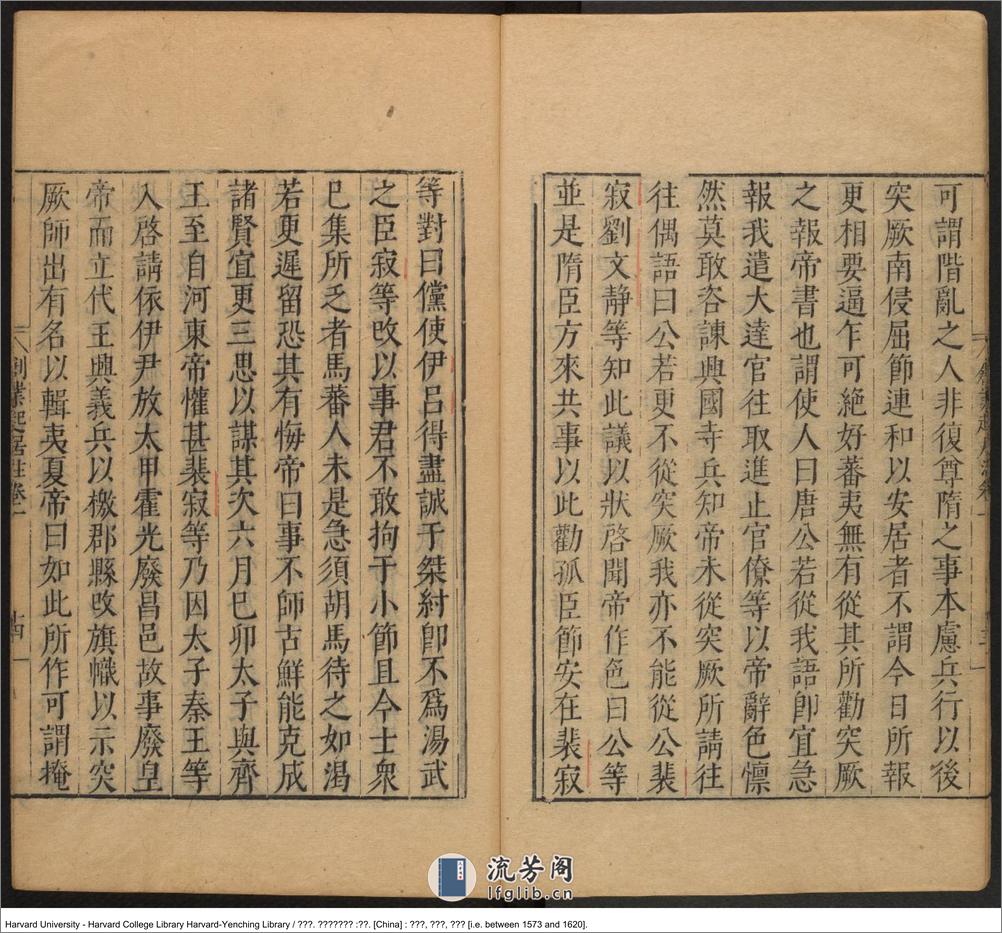 可謂階亂之人非復尊隋之事本慮兵行以後
突厥南侵屈節連和以安居者不謂今日所報
更相要逼乍可絶好蕃夷無有從其所勸突厥
之報帝書也謂使人曰唐公若從我語卽宜急
報我遣大達官往取進止官僚等以帝辭色懍
然莫敢咨諫興國寺兵知帝未從突厥所請往
往偶語曰公若更不從突厥我亦不能從公裴
寂劉文静等知此議以狀啓聞帝作色曰公等
並是隋臣方來共事以此勸孤臣節安在裴寂
等對曰儻使伊吕得盡誠于桀紂卽不爲湯武
之臣寂等攺以事君不敢拘于小節且今士衆
已集所乏者馬蕃人未是急須胡馬待之如渴
若更遲留恐其有悔帝曰事不師古鮮能克成
諸賢宜更三思以謀其次六月巳卯太子與齊
王至自河東帝懽甚裴寂等乃因太子秦王等
入啓請依伊尹放太甲霍光廢昌邑故事廢皇
帝而立代王興義兵以檄郡縣攺旗幟以示突
厥師出有名以輯夷夏帝曰如此所作可謂掩
創業起居注卷一
十四
流芳阁
lfglib.cn
Harvard University - Harvard College Library Harvard-Yenching Library / ???. ??????? :??. [China] : ???, ???, ??? [i.e. between 1573 and 1620].